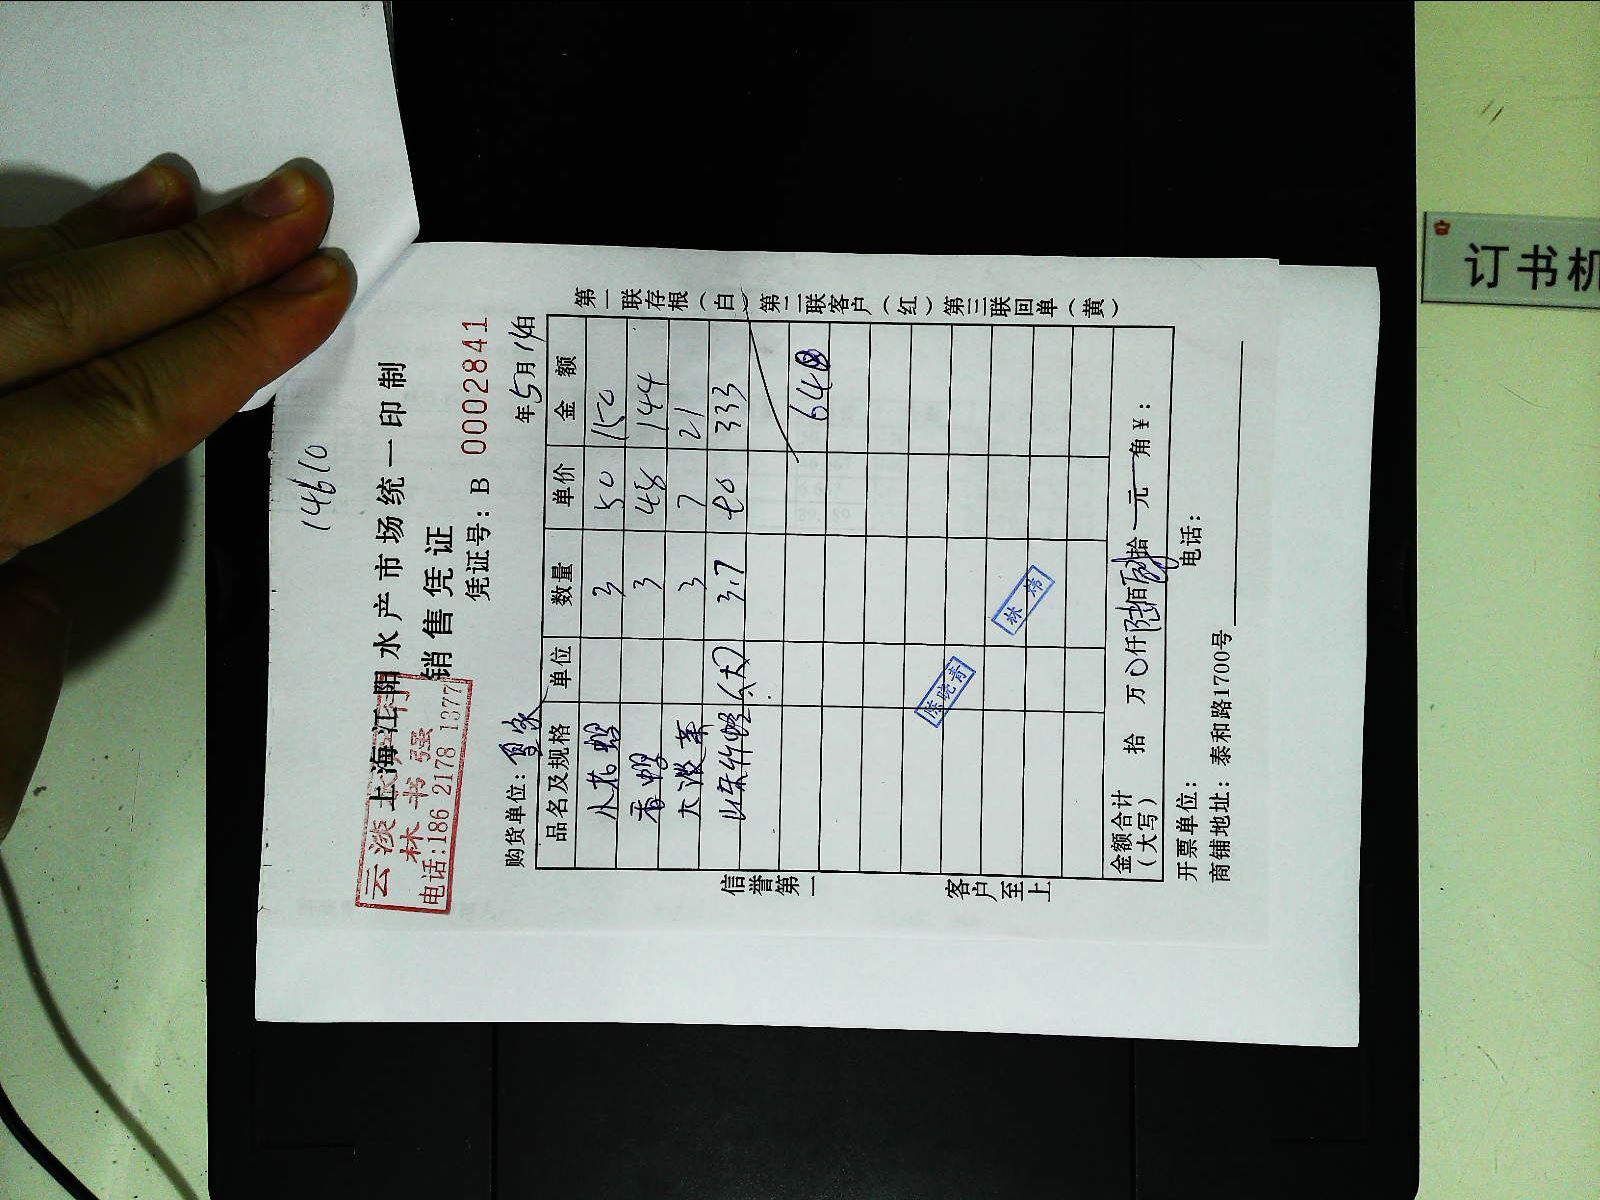 14610
上海江阳水产市场统一印制
销售凭证
云淡
林书强
电话:186 2178 1377
凭证号: B 0002841
购货单位:
年5月14日
品名及规格 单位 数量 单价 金额
小花螺 3 50 150
香螺 3 48 144
大淡菜 3 7 21
山东竹蛏(大) 3.7 90 333
648
陈晓青
林炜
金额合计(大写) 拾 万 〇仟陆佰肆拾 元 角¥:
开票单位: 电话:
商铺地址: 泰和路1700号
第一联存根(白) 第二联客户(红) 第三联回单(黄)
信誉第一
客户至上
订书机